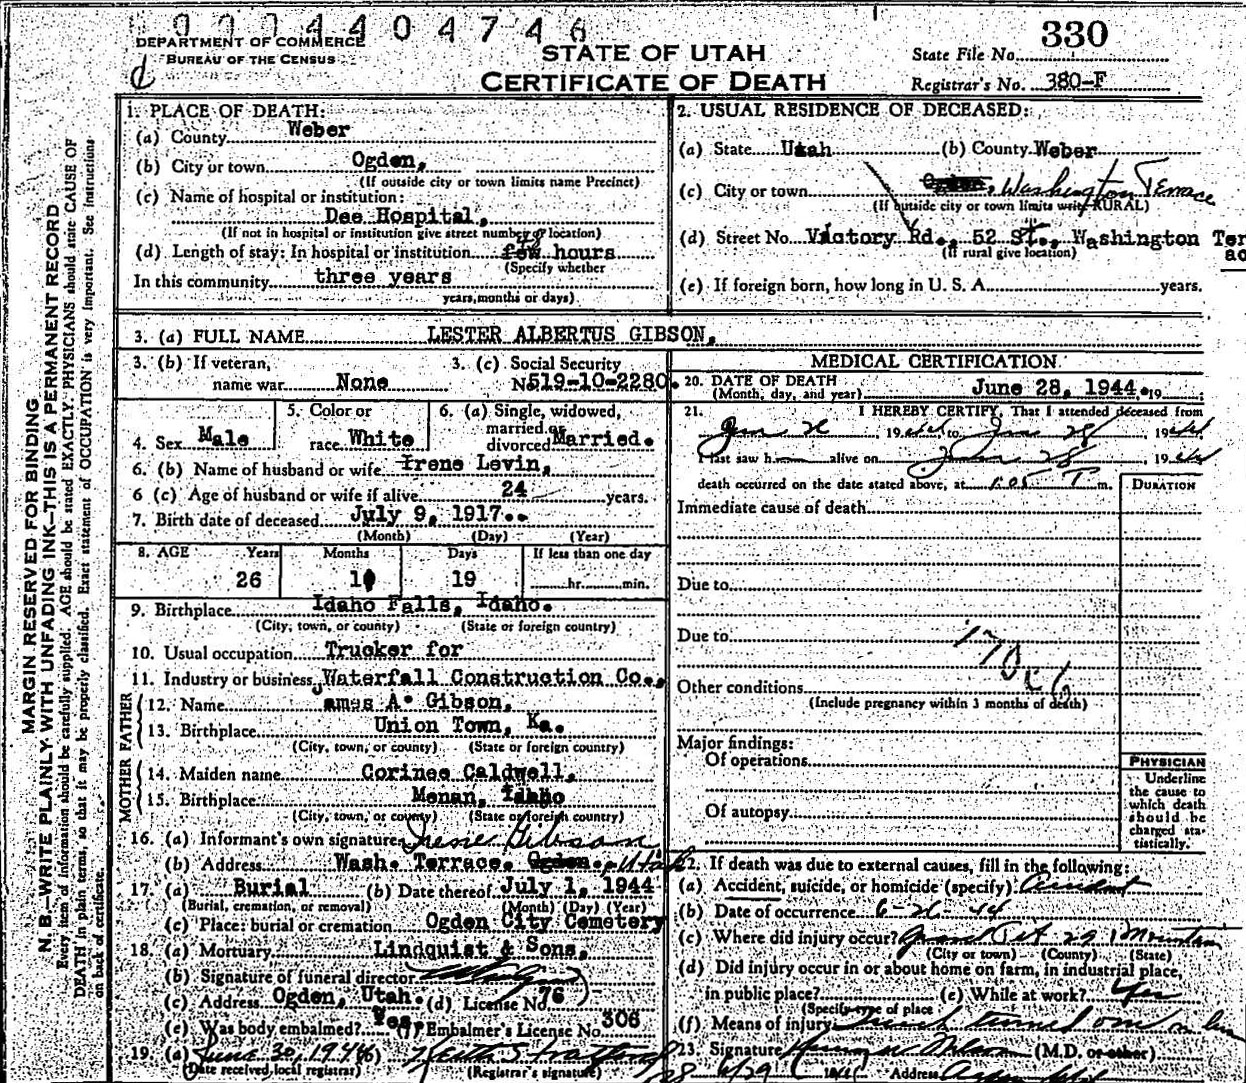 0004404746
DEPARTMENT OF COMMERCE
BUREAU OF THE CENSUS
STATE OF UTAH
CERTIFICATE OF DEATH
State File No. 330
Registrar's No. 380-F
MARGIN RESERVED FOR BINDING
N. B.—WRITE PLAINLY WITH UNFADING INK—THIS IS A PERMANENT RECORD
Every item of information should be carefully supplied. AGE should be stated EXACTLY. PHYSICIANS should state CAUSE OF
DEATH in plain terms, so that it may be properly classified. Exact statement of OCCUPATION is very important. See Instructions
on back of certificate.
1. PLACE OF DEATH:
(a) County Weber
(b) City or town Ogden,
(If outside city or town limits name Precinct)
(c) Name of hospital or institution:
Dee Hospital,
(If not in hospital or institution give street number or location)
(d) Length of stay: In hospital or institution few 48 hours
(Specify whether
In this community three years
years, months or days)
2. USUAL RESIDENCE OF DECEASED:
(a) State Utah (b) County Weber
(c) City or town Ogden, Washington Terrace
(If outside city or town limits write RURAL)
(d) Street No. Victory Rd., 52 St., Washington Ter
(If rural give location)
(e) If foreign born, how long in U. S. A. years.
3. (a) FULL NAME LESTER ALBERTUS GIBSON,
3. (b) If veteran, name war None
3. (c) Social Security No. 519-10-2280.
4. Sex Male
5. Color or race White
6. (a) Single, widowed, married or divorced Married.
6. (b) Name of husband or wife Irene Levin,
6 (c) Age of husband or wife if alive 24 years.
7. Birth date of deceased July 9, 1917..
(Month) (Day) (Year)
8. AGE Years Months Days If less than one day
26 19 hr. min.
9. Birthplace Idaho Falls, Idaho.
(City, town, or county) (State or foreign country)
10. Usual occupation Trucker for
11. Industry or business Waterfall Construction Co.,
FATHER
12. Name James A. Gibson,
13. Birthplace Union Town, Ka.
(City, town, or county) (State or foreign country)
MOTHER
14. Maiden name Corinee Caldwell,
15. Birthplace Menan, Idaho
(City, town, or county) (State or foreign country)
16. (a) Informant's own signature Irene Gibson
(b) Address Wash. Terrace, Ogden, Utah
17. (a) Burial (b) Date thereof July 1, 1944
(Burial, cremation, or removal) (Month) (Day) (Year)
(c) Place: burial or cremation Ogden City Cemetery
18. (a) Mortuary Lindquist & Sons,
(b) Signature of funeral director
(c) Address Ogden, Utah. (d) License No. 76
(e) Was body embalmed? Yes (f) Embalmer's License No. 306
19. (a) June 30, 1944 (b)
(Date received local registrar) (Registrar's signature)
MEDICAL CERTIFICATION
20. DATE OF DEATH June 28, 1944. 19
(Month, day, and year)
21. I HEREBY CERTIFY, That I attended deceased from
June 26, 1944, to June 28, 1944
I last saw h alive on June 28, 1944
death occurred on the date stated above, at 1:05 P m.
DURATION
Immediate cause of death
Due to
Due to
Other conditions
(Include pregnancy within 3 months of death)
Major findings:
Of operations
Of autopsy
PHYSICIAN
Underline
the cause to
which death
should be
charged sta-
tistically.
22. If death was due to external causes, fill in the following:
(a) Accident, suicide, or homicide (specify) Accident
(b) Date of occurrence 6-26-44
(c) Where did injury occur?
(City or town) (County) (State)
(d) Did injury occur in or about home on farm, in industrial place,
in public place? (e) While at work? Yes
(Specify type of place)
(f) Means of injury Truck turned over on him
23. Signature (M.D. or other)
Address